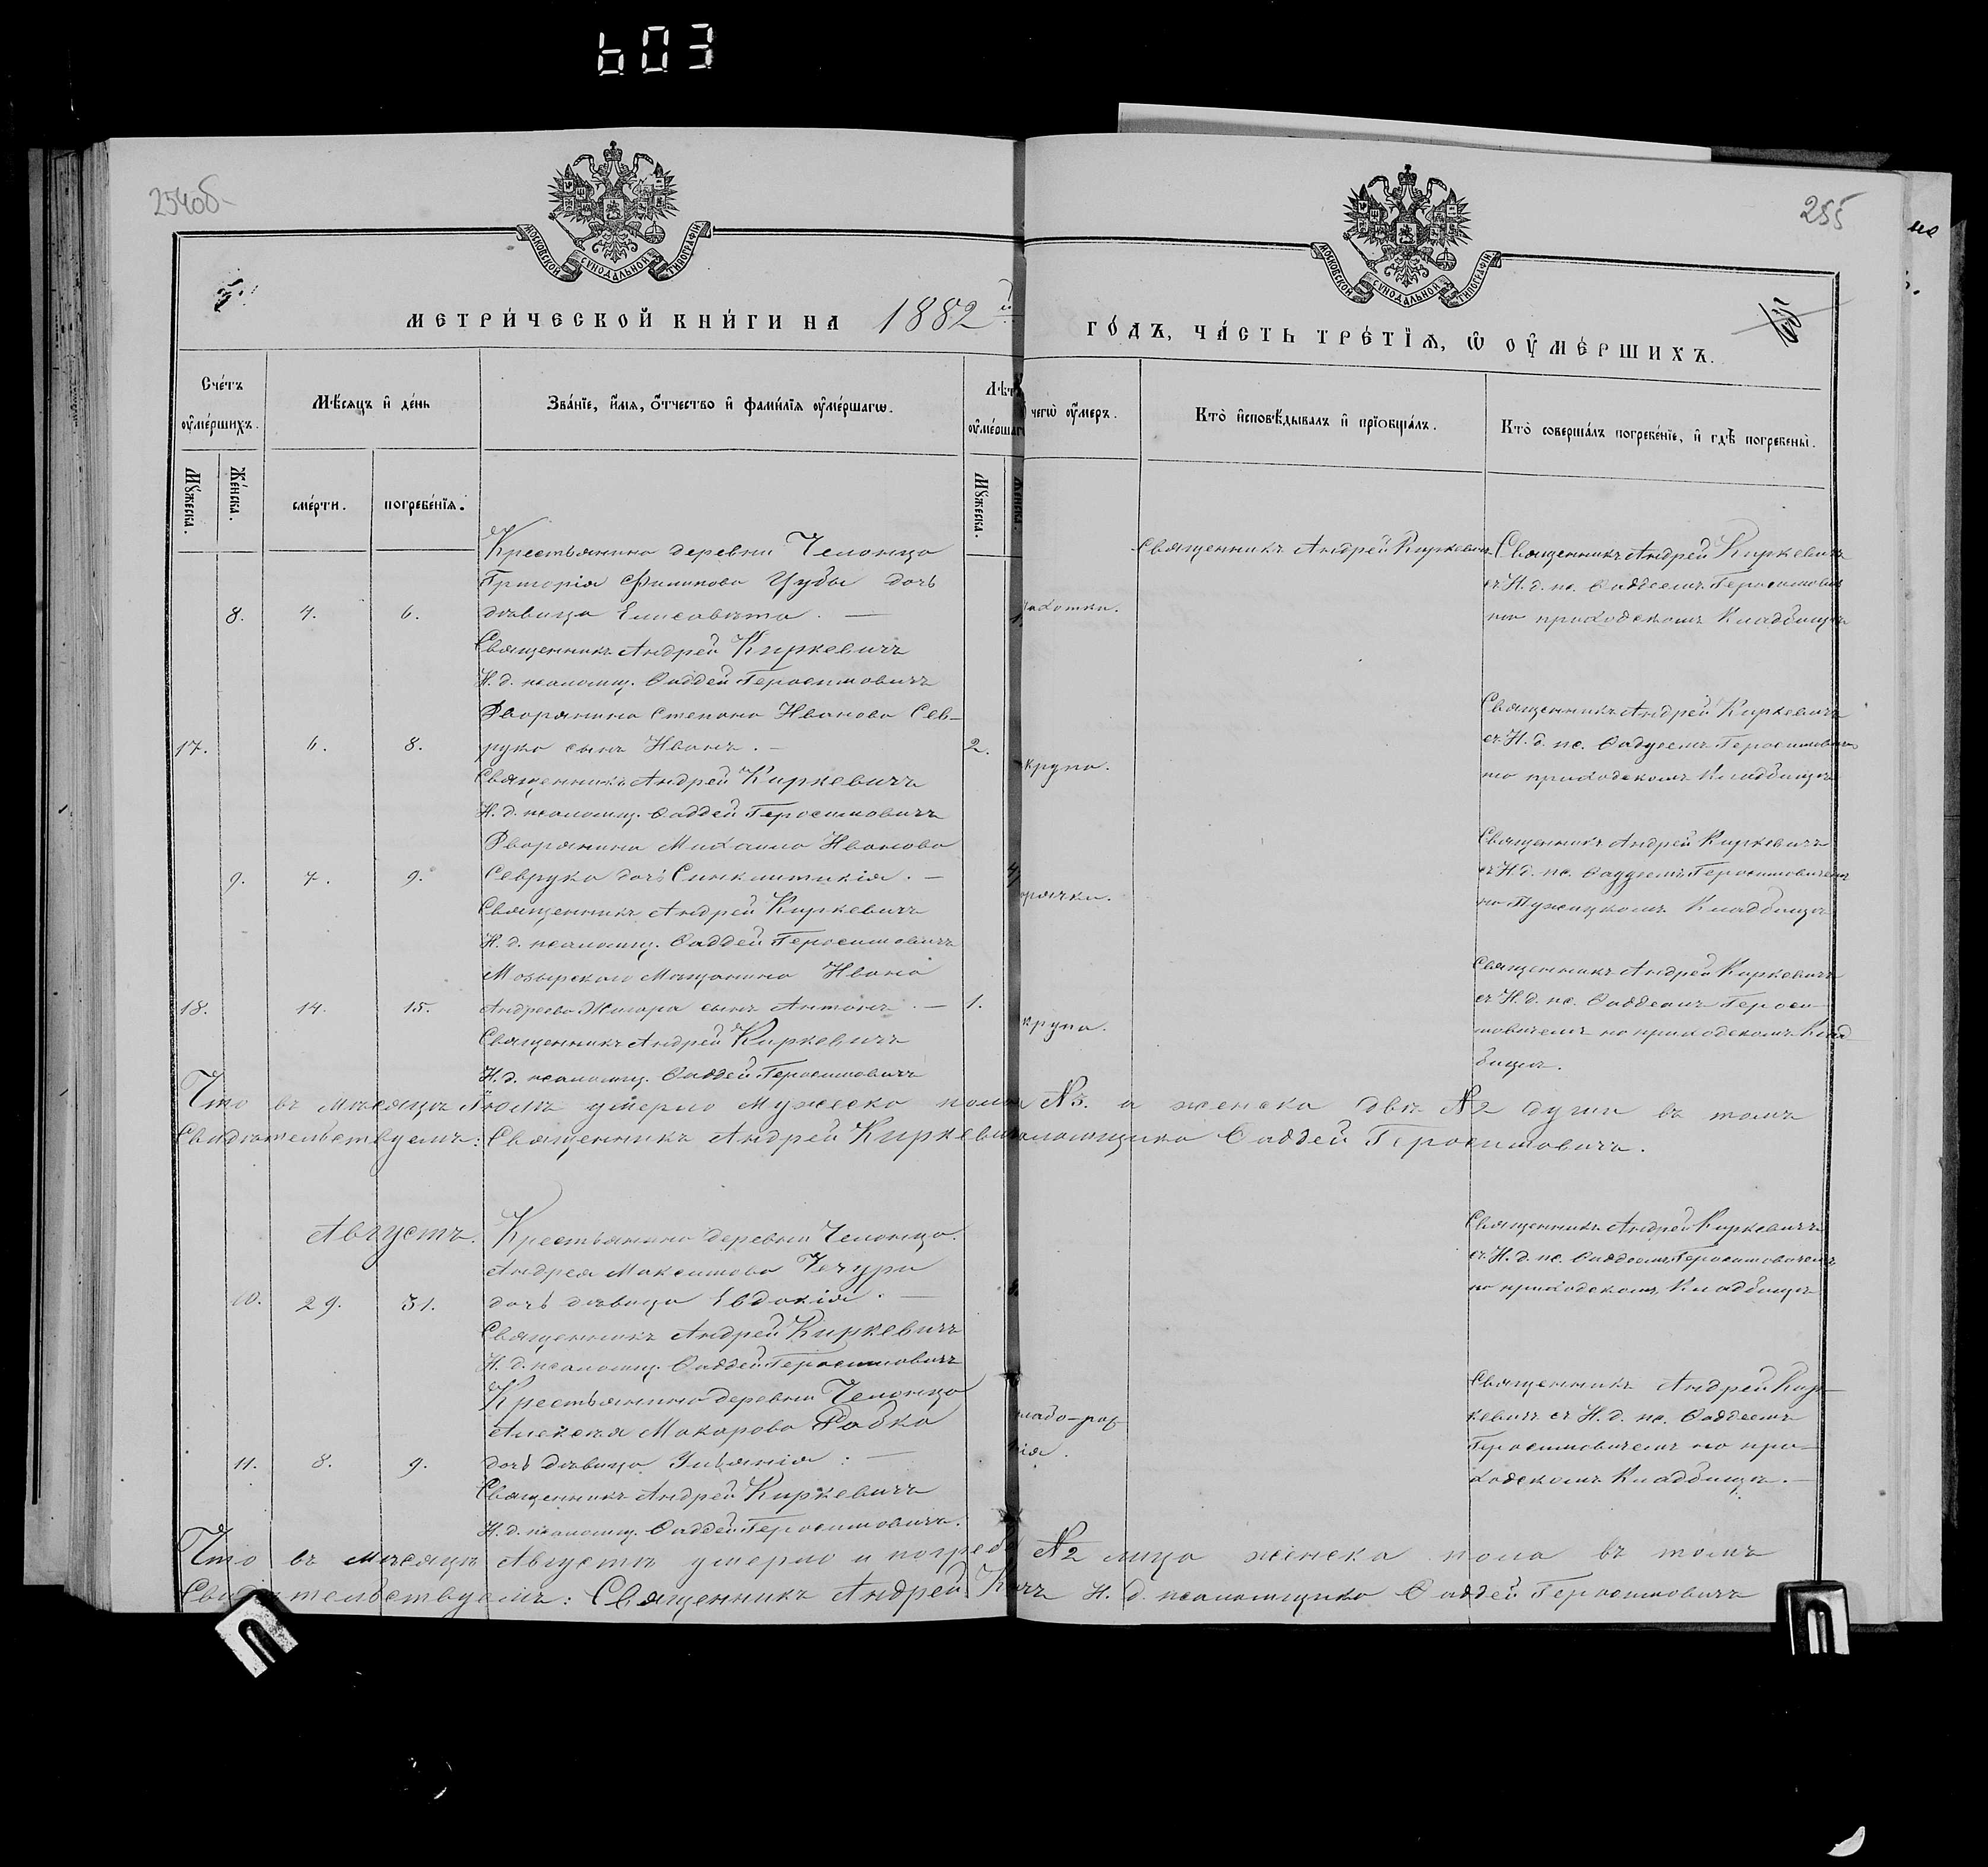 603
254об
255
МОСКОВСКОЙ СѴНОДАЛЬНОЙ ТИПОГРАФІИ
МОСКОВСКОЙ СѴНОДАЛЬНОЙ ТИПОГРАФІИ
МЕТРИ́ЧЕСКОЙ КНИ́ГИ НА 1882 й
ГО́ДЪ, ЧА́СТЬ ТРЕ́ТЇѦ, Ѡ҆ ОУ҆МЕ́РШИХЪ.
Сче́тъ оу҆ме́ршихъ.
Мѣ́сяцъ и҆ де́нь
Зва́нїе, и҆́мя, ѻ҆́тчество и҆ фами́лїя оу҆ме́ршагѡ.
Лѣт
оу҆ме́рша
чегѡ̀ оу҆́меръ.
Кто̀ и҆сповѣ́дывалъ и҆ прїѻбща́лъ.
Кто̀ соверша́лъ погребе́нїе, и҆ гдѣ̀ погребены̀.
Мꙋ́жеска.
Же́нска.
сме́рти.
погребе́нїя.
Мꙋ́жеска.
Же́нска.
Крестьянина деревни Челонца
Григорія Филипова Цубы дочь
8. 4. 6. дѣвица Елисавета. —
Священникъ Андрей Киркевичъ
И. д. псаломщ. Фаддей Герасимовичъ
Священникъ Андрей Киркевичъ
Священникъ Андрей Киркевичъ
съ И. д. пс. Фаддеемъ Герасимович
на приходскомъ Кладбищѣ
Дворянина Степана Иванова Сев-
17. 6. 8. рука сынъ Иванъ. — 2. крупа.
Священникъ Андрей Киркевичъ
И. д. псаломщ. Фаддей Герасимовичъ
Священникъ Андрей Киркевичъ
съ И. д. пс. Фаддеемъ Герасимовичемъ
на приходскомъ Кладбищѣ
Дворянина Михаила Иванова
9. 7. 9. Севрука дочь Синклитикія. — орячка.
Священникъ Андрей Киркевичъ
И. д. псаломщ. Фаддей Герасимовичъ
Священникъ Андрей Киркевичъ
съ И. д. пс. Фаддеемъ Герасимовичемъ
на Кладбищѣ
Мозырскаго Мѣщанина Ивана
18. 14. 15. Андреева Жигара сынъ Антонъ. — 1. крупа.
Священникъ Андрей Киркевичъ
И. д. псаломщ. Фаддей Герасимовичъ
Священникъ Андрей Киркевичъ
съ И. д. пс. Фаддеемъ Гераси-
мовичемъ на приходскомъ Клад
бищѣ.
Что въ мѣсяцѣ Іюлѣ умерло мужеска пола №3. а женска двѣ №2 души въ томъ
Свидѣтельствуемъ: Священникъ Андрей Киркеви аломщика Фаддей Герасимовичъ.
Августъ. Крестьянина деревни Челонца.
Андрея Максимова Чечуры
10. 29. 31. дочь дѣвица Евдокія. —
Священникъ Андрей Киркевичъ
И. д. псаломщ. Фаддей Герасимовичъ
Священникъ Андрей Киркевичъ
съ И. д. пс. Фаддеемъ Герасимовичемъ
на приходскомъ Кладбищѣ
Крестьянина деревни Челонца
Алексѣя Макарова Рабка
11. 8. 9. дочь дѣвица Ульянія: —
Священникъ Андрей Киркевичъ
И. д. псаломщ. Фаддей Герасимовичъ.
Священникъ Андрей Кир-
кевичъ съ И. д. пс. Фаддеемъ
Герасимовичемъ на при-
ходскомъ Кладбищѣ. —
Что въ мѣсяцѣ Августѣ умерло и погреб №2 лица женска пола въ томъ
Свидѣтельствуемъ: Священникъ Андрей К чъ И. д. псаломщика Фаддей Герасимовичъ